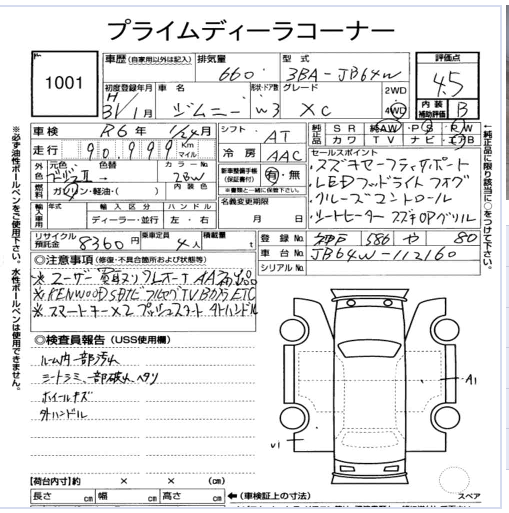 プライムディーラコーナー
1001
車歴(自家用以外は記入) 排気量 660 型式 3BA-JB64W
評価点 4.5
初度登録年月 H 31/1月 車名 ジムニー 形状・ドア数 W3 グレード XC 2WD 4WD
内装補助評価 B
車検 R6年 1/24月 シフト AT
純正品 SR 純AW PS PW
革 カワ TV ナビ エアB
走行 90,999 Km マイル 冷房 AAC
セールスポイント
・スズキセーフティサポート
・LEDヘッドライト フォグ
・クルーズコントロール
・シートヒーター スズキOPグリル
外色 元色 色替 カラーNo. ZBW
新車整備手帳(保証書付) 有・無
※書類と一緒に保管下さい。
燃料 ガソリン・軽油・( ) 内装色
名義変更期限 月 日
輸入車用 年式 輸入区分 ハンドル
ディーラー・並行 左・右
リサイクル預託金 8360円 乗車定員 4人 積載量 t
登録No. 神戸 586 や 80
車台No. JB64W-112160
シリアルNo.
◎注意事項(修復・不具合箇所および状態等)
※KENWOOD SDナビ フルセグTV Bカメラ ETC
※スマートキー×2 プッシュスタート
◎検査員報告(USS使用欄)
ルーム内一部汚れ
シートシミ、一部破れ、ヘタリ
ホイールキズ
外ハンドル
A1
U1
【荷台内寸】約 × × (cm)
長さ cm 幅 cm 高さ cm
←(車検証上の寸法)
スペア
※必ず油性ボールペンをご使用下さい。水性ボールペンは使用できません。
←純正品に限り該当に○をつけて下さい。